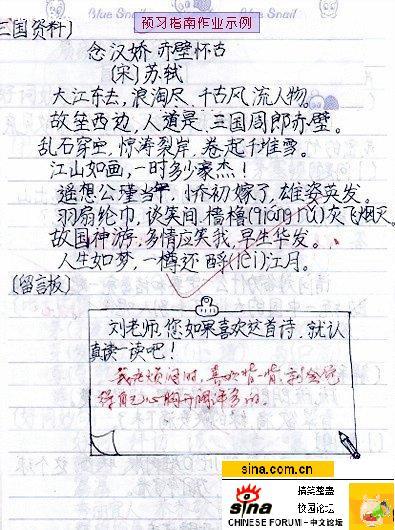 预习指南作业示例
Blue Snail Blue Snail
三国资料〕
念汉娇 赤壁怀古
〔宋〕苏轼
大江东去,浪淘尽、千古风流人物。
故垒西边,人道是:三国周郎赤壁。
乱石穿空,惊涛裂岸,卷起千堆雪。
江山如画,一时多少豪杰!
遥想公瑾当年,小乔初嫁了,雄姿英发。
羽扇纶巾,谈笑间,樯橹(qiáng rǔ)灰飞烟灭。
故国神游,多情应笑我,早生华发。
人生如梦,一樽还酹(lèi)江月。
〔留言板〕
刘老师,您如果喜欢这首诗,就认
真读一读吧!
我在烦闷时,喜欢背一背,就会觉
得自己心胸开阔许多的。
sina.com.cn
sina 搞笑整蛊
校园论坛
CHINESE FORUM-中文论坛